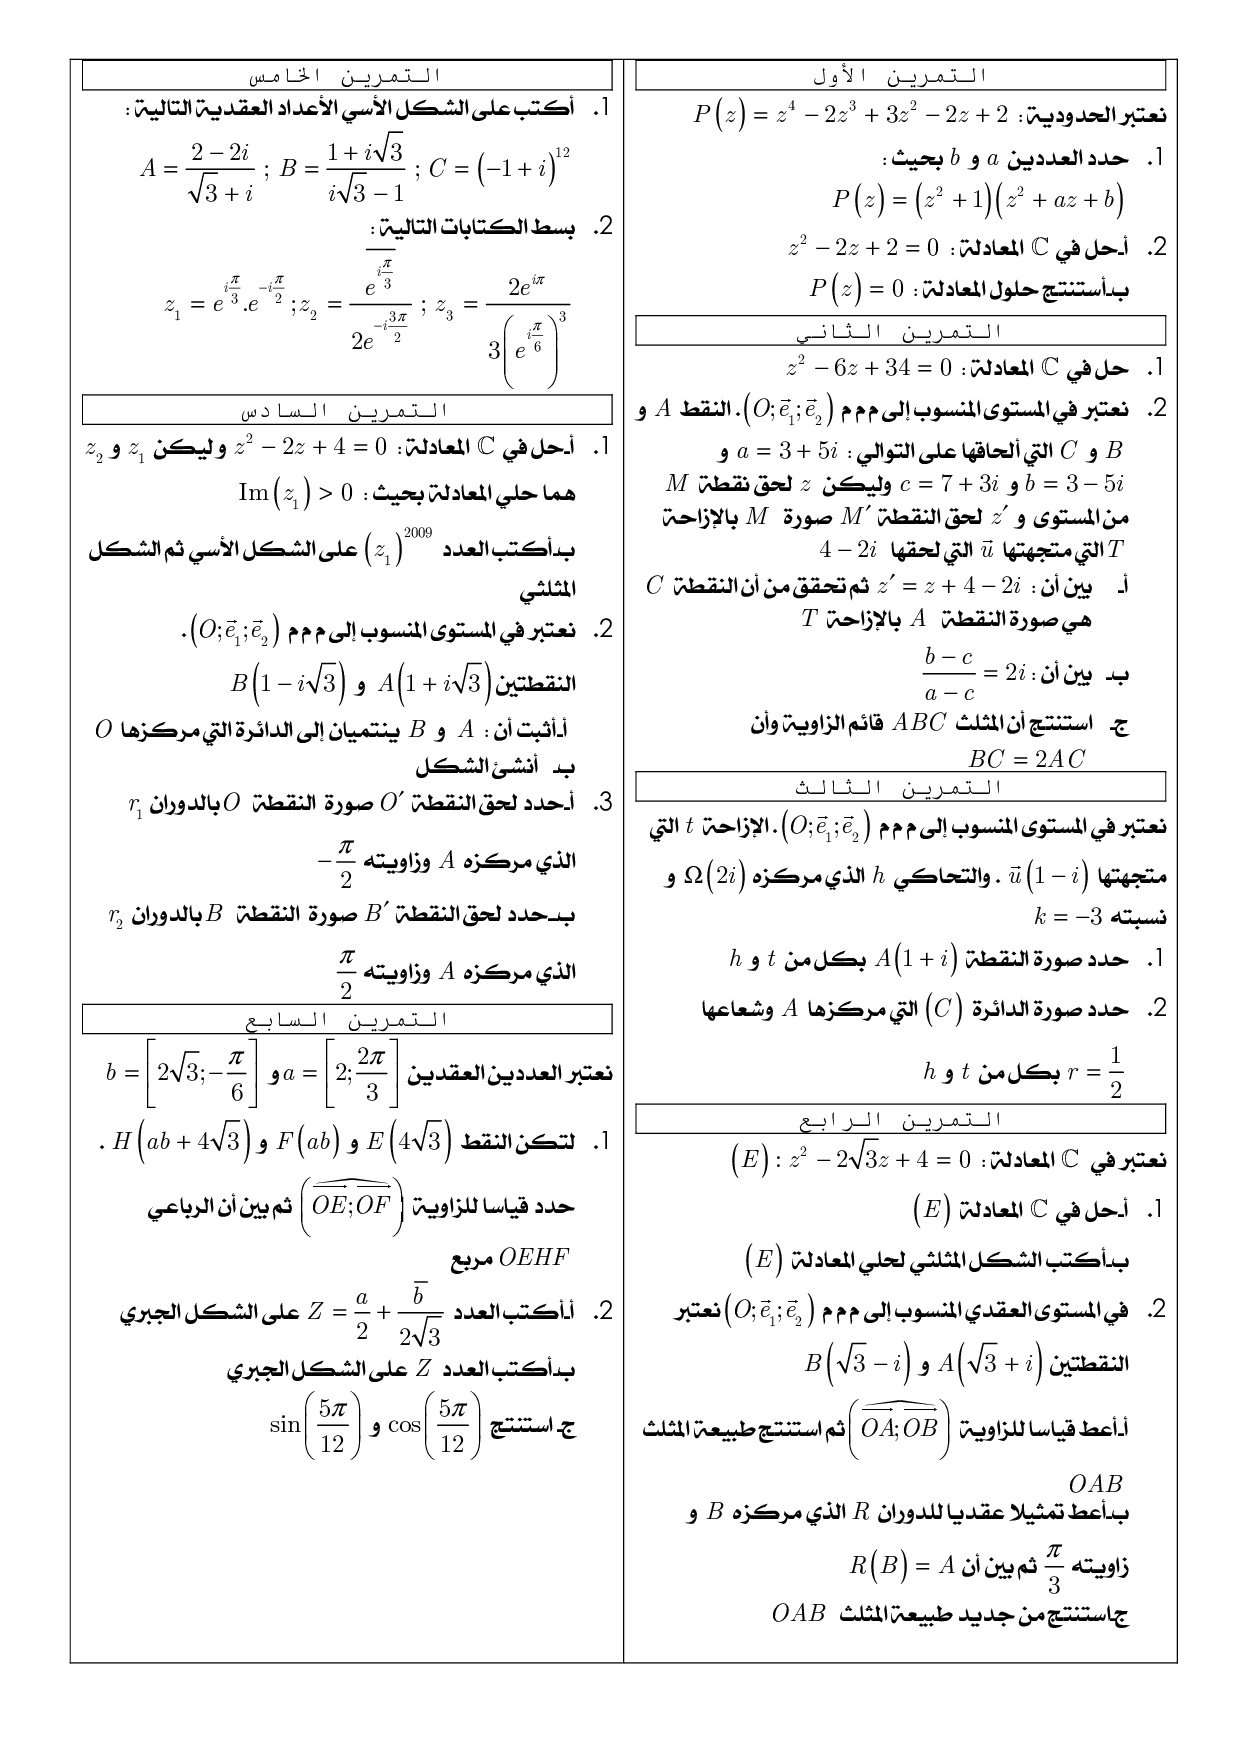 التمرين الأول
نعتبر الحدودية : P(z) = z⁴ − 2z³ + 3z² − 2z + 2
1. حدد العددين a و b بحيث :
P(z) = (z² + 1)(z² + az + b)
2. أ‌-حل في ℂ المعادلة : z² − 2z + 2 = 0
ب‌-أستنتج حلول المعادلة : P(z) = 0
التمرين الثاني
1. حل في ℂ المعادلة : z² − 6z + 34 = 0
2. نعتبر في المستوى المنسوب إلى م م م (O; e⃗₁; e⃗₂). النقط A و
B و C التي ألحاقها على التوالي : a = 3 + 5i و
b = 3 − 5i و c = 7 + 3i وليكن z لحق نقطة M
من المستوى و z′ لحق النقطة M′ صورة M بالإزاحة
T التي متجهتها u⃗ التي لحقها 4 − 2i
أ‌- بين أن : z′ = z + 4 − 2i ثم تحقق من أن النقطة C
هي صورة النقطة A بالإزاحة T
ب‌- بين أن : (b − c)/(a − c) = 2i
ج‌- استنتج أن المثلث ABC قائم الزاوية وأن
BC = 2AC
التمرين الثالث
نعتبر في المستوى المنسوب إلى م م م (O; e⃗₁; e⃗₂). الإزاحة t التي
متجهتها u⃗(1 − i) . والتحاكي h الذي مركزه Ω(2i) و
نسبته k = −3
1. حدد صورة النقطة A(1 + i) بكل من t و h
2. حدد صورة الدائرة (C) التي مركزها A وشعاعها
r = 1/2 بكل من t و h
التمرين الرابع
نعتبر في ℂ المعادلة : (E) : z² − 2√3z + 4 = 0
1. أ‌-حل في ℂ المعادلة (E)
ب‌-أكتب الشكل المثلثي لحلي المعادلة (E)
2. في المستوى العقدي المنسوب إلى م م م (O; e⃗₁; e⃗₂) نعتبر
النقطتين A(√3 + i) و B(√3 − i)
أ‌-أعط قياسا للزاوية (OA; OB) ثم استنتج طبيعة المثلث
OAB
ب‌-أعط تمثيلا عقديا للدوران R الذي مركزه B و
زاويته π/3 ثم بين أن R(B) = A
ج‌-استنتج من جديد طبيعة المثلث OAB
التمرين الخامس
1. أكتب على الشكل الأسي الأعداد العقدية التالية :
A = (2 − 2i)/(√3 + i) ; B = (1 + i√3)/(i√3 − 1) ; C = (−1 + i)¹²
2. بسط الكتابات التالية :
z₁ = e^(iπ/3).e^(−iπ/2) ; z₂ = \overline{e^(iπ/3)}/(2e^(−i3π/2)) ; z₃ = 2e^(iπ)/(3(e^(iπ/6))³)
التمرين السادس
1. أ‌-حل في ℂ المعادلة : z² − 2z + 4 = 0 وليكن z₁ و z₂
هما حلي المعادلة بحيث : Im(z₁) > 0
ب‌-أكتب العدد (z₁)²⁰⁰⁹ على الشكل الأسي ثم الشكل
المثلثي
2. نعتبر في المستوى المنسوب إلى م م م (O; e⃗₁; e⃗₂) .
النقطتين A(1 + i√3) و B(1 − i√3)
أ‌-أثبت أن : A و B ينتميان إلى الدائرة التي مركزها O
ب‌- أنشئ الشكل
3. أ‌-حدد لحق النقطة O′ صورة النقطة O بالدوران r₁
الذي مركزه A وزاويته −π/2
ب‌-حدد لحق النقطة B′ صورة النقطة B بالدوران r₂
الذي مركزه A وزاويته π/2
التمرين السابع
نعتبر العددين العقدين a = [2; 2π/3] و b = [2√3; −π/6]
1. لتكن النقط E(4√3) و F(ab) و H(ab + 4√3) .
حدد قياسا للزاوية (OE; OF) ثم بين أن الرباعي
OEHF مربع
2. أ‌-أكتب العدد Z = a/2 + b̅/(2√3) على الشكل الجبري
ب‌-أكتب العدد Z على الشكل الجبري
ج‌-استنتج cos(5π/12) و sin(5π/12)